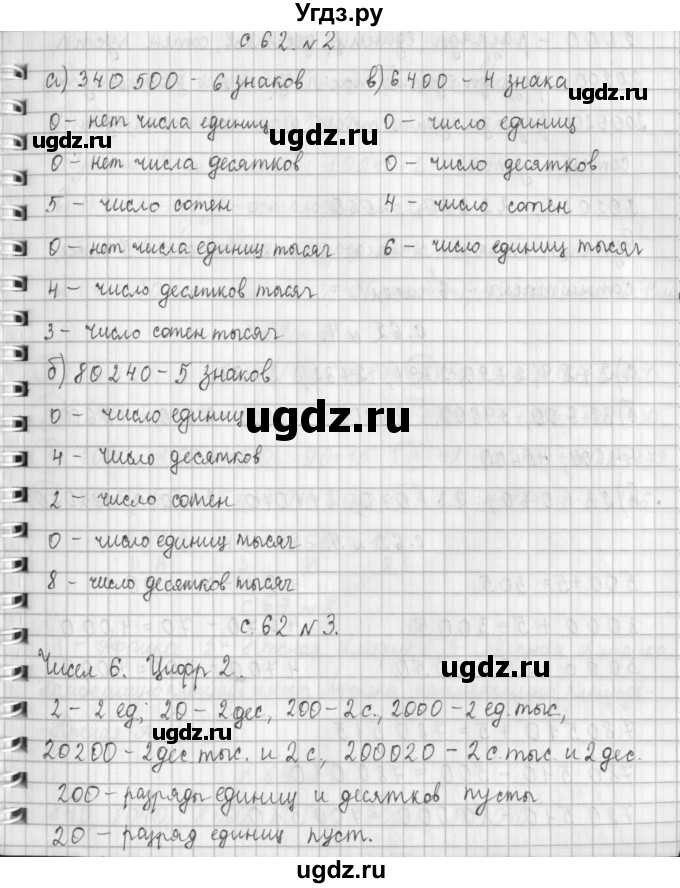 Угдз.ру
с 62. №2
а) 340 500 - 6 знаков
0 - нет числа единиц
0 - нет числа десятков
5 - число сотен
0 - нет числа единиц тысяч
4 - число десятков тысяч
3 - число сотен тысяч
в) 6 400 - 4 знака
0 - число единиц
0 - число десятков
4 - число сотен
6 - число единиц тысяч
б) 80 240 - 5 знаков
0 - число единиц
4 - число десятков
2 - число сотен
0 - число единиц тысяч
8 - число десятков тысяч
с. 62 №3.
Чисел 6. Цифр 2.
2 - 2 ед; 20 - 2 дес, 200 - 2 с., 2000 - 2 ед. тыс,
20200 - 2 дес тыс. и 2 с, 200020 - 2 с. тыс и 2 дес.
200 - разряды единиц и десятков пусты
20 - разряд единиц пуст.
ugdz.ru
ugdz.ru
ugdz.ru
ugdz.ru
ugdz.ru
ugdz.ru
ugdz.ru
ugdz.ru